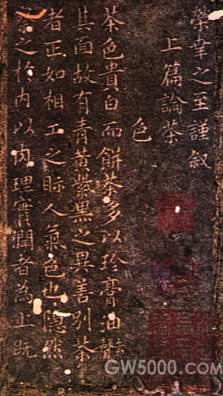 榮幸之至謹叙
上篇論茶
色
茶色貴白而餅茶多以珍膏油去聲
其面故有青黃紫黑之異善別茶
者正如相工之眎人氣色也隱然
察之於內以肉理實潤者為上既
GW5000.com